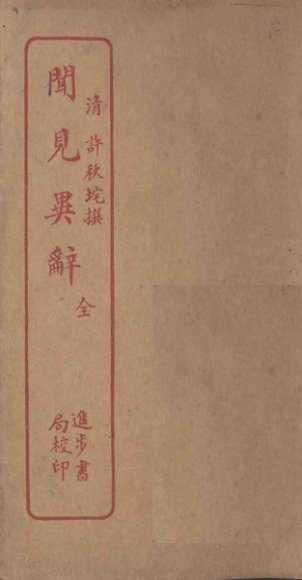 清 許秋垞撰
聞見異辭 全
進步書
局校印